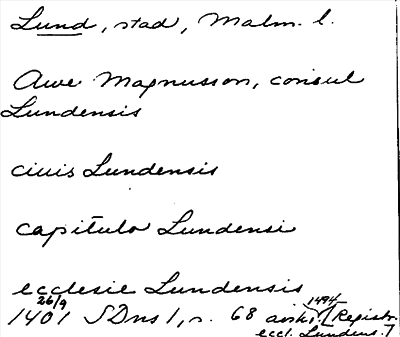 Lund, stad, Malm. l.
Awe Magnusson, consul
Lundensis
ciuis Lundensis
capitulo Lundensi
ecclesie Lundensis
26/9
1401 SDns 1, s. 68 avskr. 1494 [Registr.
eccl. Lundens.]